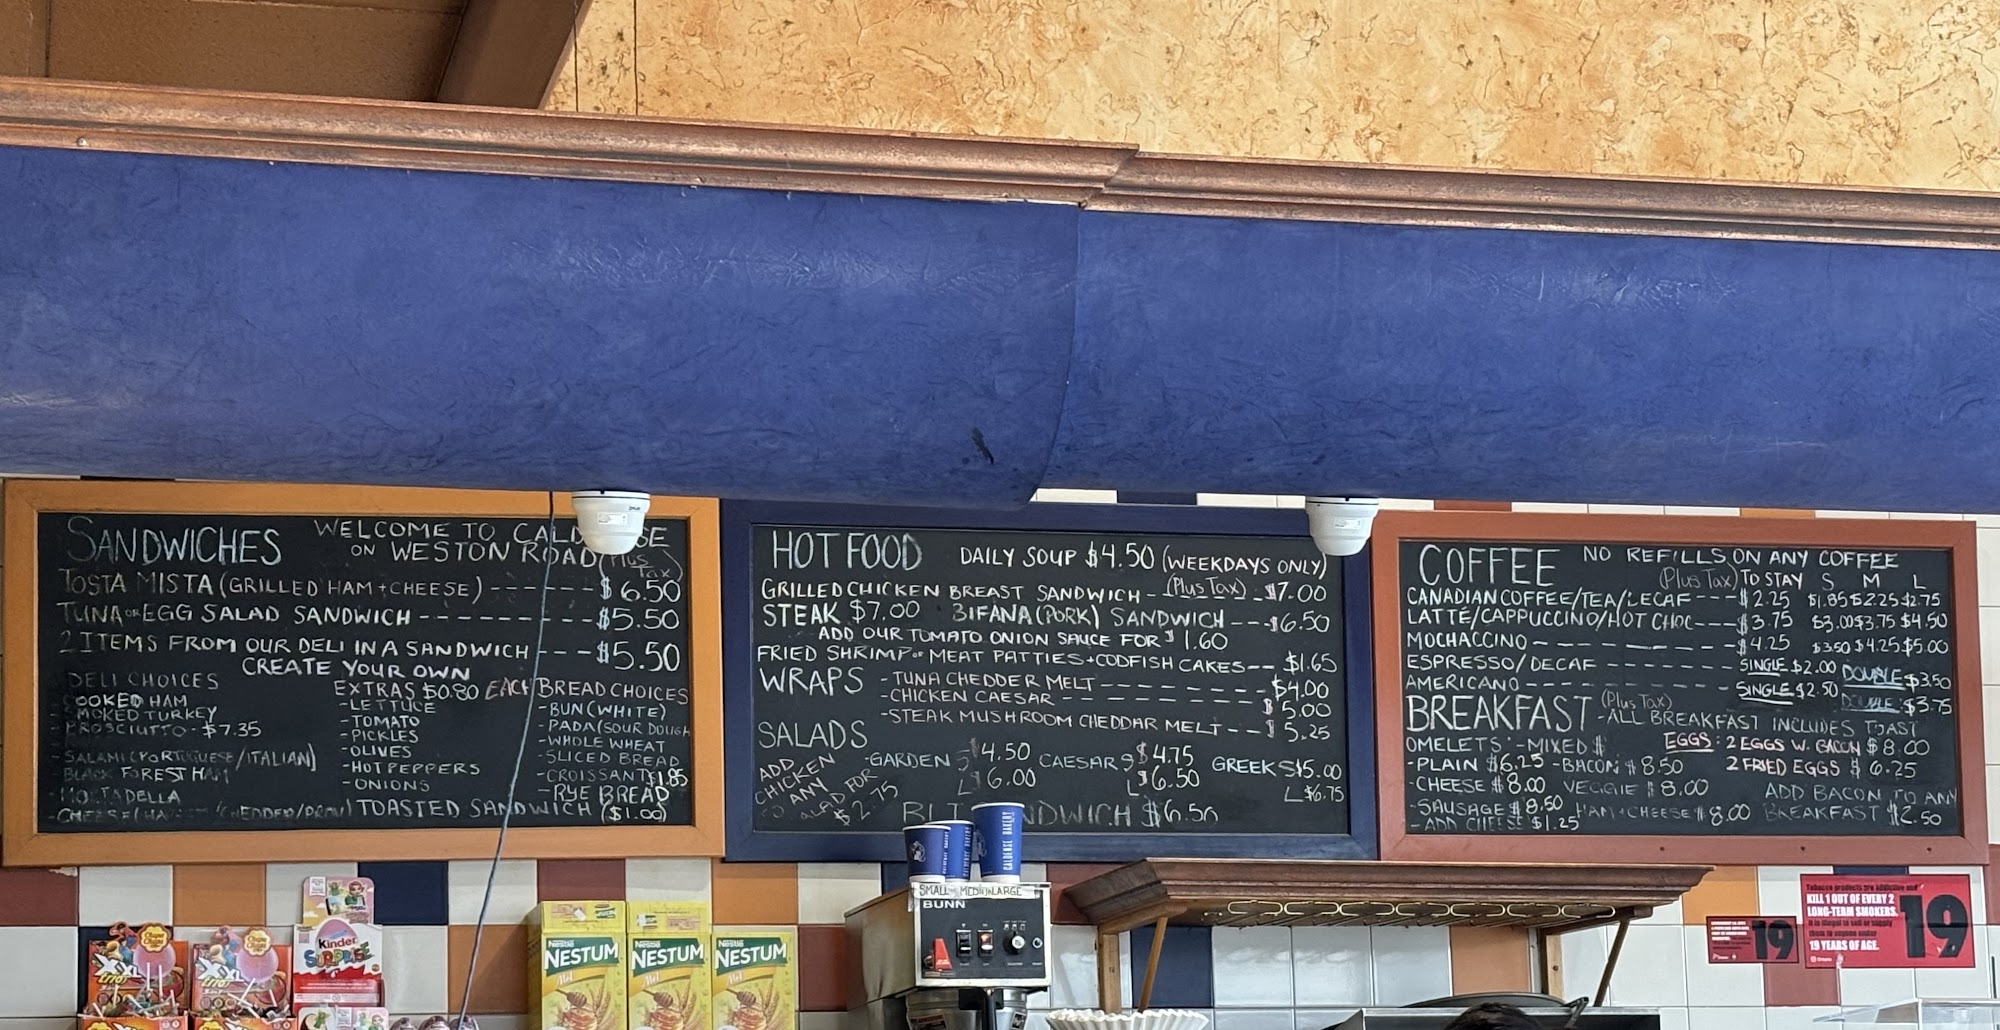 SANDWICHES
WELCOME TO CALD SE
ON WESTON ROAD (Plus Tax)
TOSTA MISTA (GRILLED HAM + CHEESE) ------ $6.50
TUNA OR EGG SALAD SANDWICH -------- $5.50
2 ITEMS FROM OUR DELI IN A SANDWICH --- $5.50
CREATE YOUR OWN
DELI CHOICES
COOKED HAM
SMOKED TURKEY
PROSCIUTTO - $7.35
- SALAMI (PORTUGUESE/ITALIAN)
- BLACK FOREST HAM
- MORTADELLA
EXTRAS $0.80 EACH
- LETTUCE
- TOMATO
- PICKLES
- OLIVES
- HOT PEPPERS
- ONIONS
BREAD CHOICES
- BUN (WHITE)
- PADA (SOUR DOUGH
- WHOLE WHEAT
- SLICED BREAD
- CROISSANT $1.85
- RYE BREAD
TOASTED SANDWICH ($1.00)
HOT FOOD
DAILY SOUP $4.50 (WEEKDAYS ONLY)
GRILLED CHICKEN BREAST SANDWICH -- (Plus Tax) $7.00
STEAK $7.00 BIFANA (PORK) SANDWICH --- $6.50
ADD OUR TOMATO ONION SAUCE FOR $1.60
FRIED SHRIMP OR MEAT PATTIES + CODFISH CAKES -- $1.65
WRAPS
- TUNA CHEDDER MELT -------- $4.00
- CHICKEN CAESAR -- -------- $5.00
- STEAK MUSHROOM CHEDDAR MELT --- $5.25
SALADS
- GARDEN S $4.50 L $6.00
CAESAR S $4.75 L $6.50
GREEK S $5.00 L $6.75
ADD CHICKEN TO ANY SALAD FOR $2.75
BLT NDWICH $6.50
COFFEE
NO REFILLS ON ANY COFFEE
(Plus Tax) TO STAY S M L
CANADIAN COFFEE/TEA/DECAF --- $2.25 $1.85 $2.25 $2.75
LATTÉ/CAPPUCCINO/HOT CHOC --- $3.75 $3.00 $3.75 $4.50
MOCHACCINO ---------- $4.25 $3.50 $4.25 $5.00
ESPRESSO/DECAF ------- SINGLE $2.00 DOUBLE $3.50
AMERICANO ---------- SINGLE $2.50 DOUBLE $3.75
BREAKFAST (Plus Tax)
- ALL BREAKFAST INCLUDES TOAST
OMELETS: - MIXED $
- PLAIN $6.25 - BACON $8.50
- CHEESE $8.00 VEGGIE $8.00
- SAUSAGE $8.50 HAM + CHEESE $8.00
- ADD CHEESE $1.25
EGGS: 2 EGGS W. BACON $8.00
2 FRIED EGGS $6.25
ADD BACON TO ANY
BREAKFAST $2.50
CALDENSE BAKERY
SMALL MEDIUM LARGE
BUNN
Chupa Chups
XXL
Chupa Chups
XXL
Kinder
SURPRISE
Nestlé
NESTUM
Mel
Nestlé
NESTUM
Mel
Nestlé
NESTUM
Mel
19
Tobacco products are addictive and
KILL 1 OUT OF EVERY 2
LONG-TERM SMOKERS.
It is illegal to sell or supply
them to anyone under
19 YEARS OF AGE.
19
Ontario